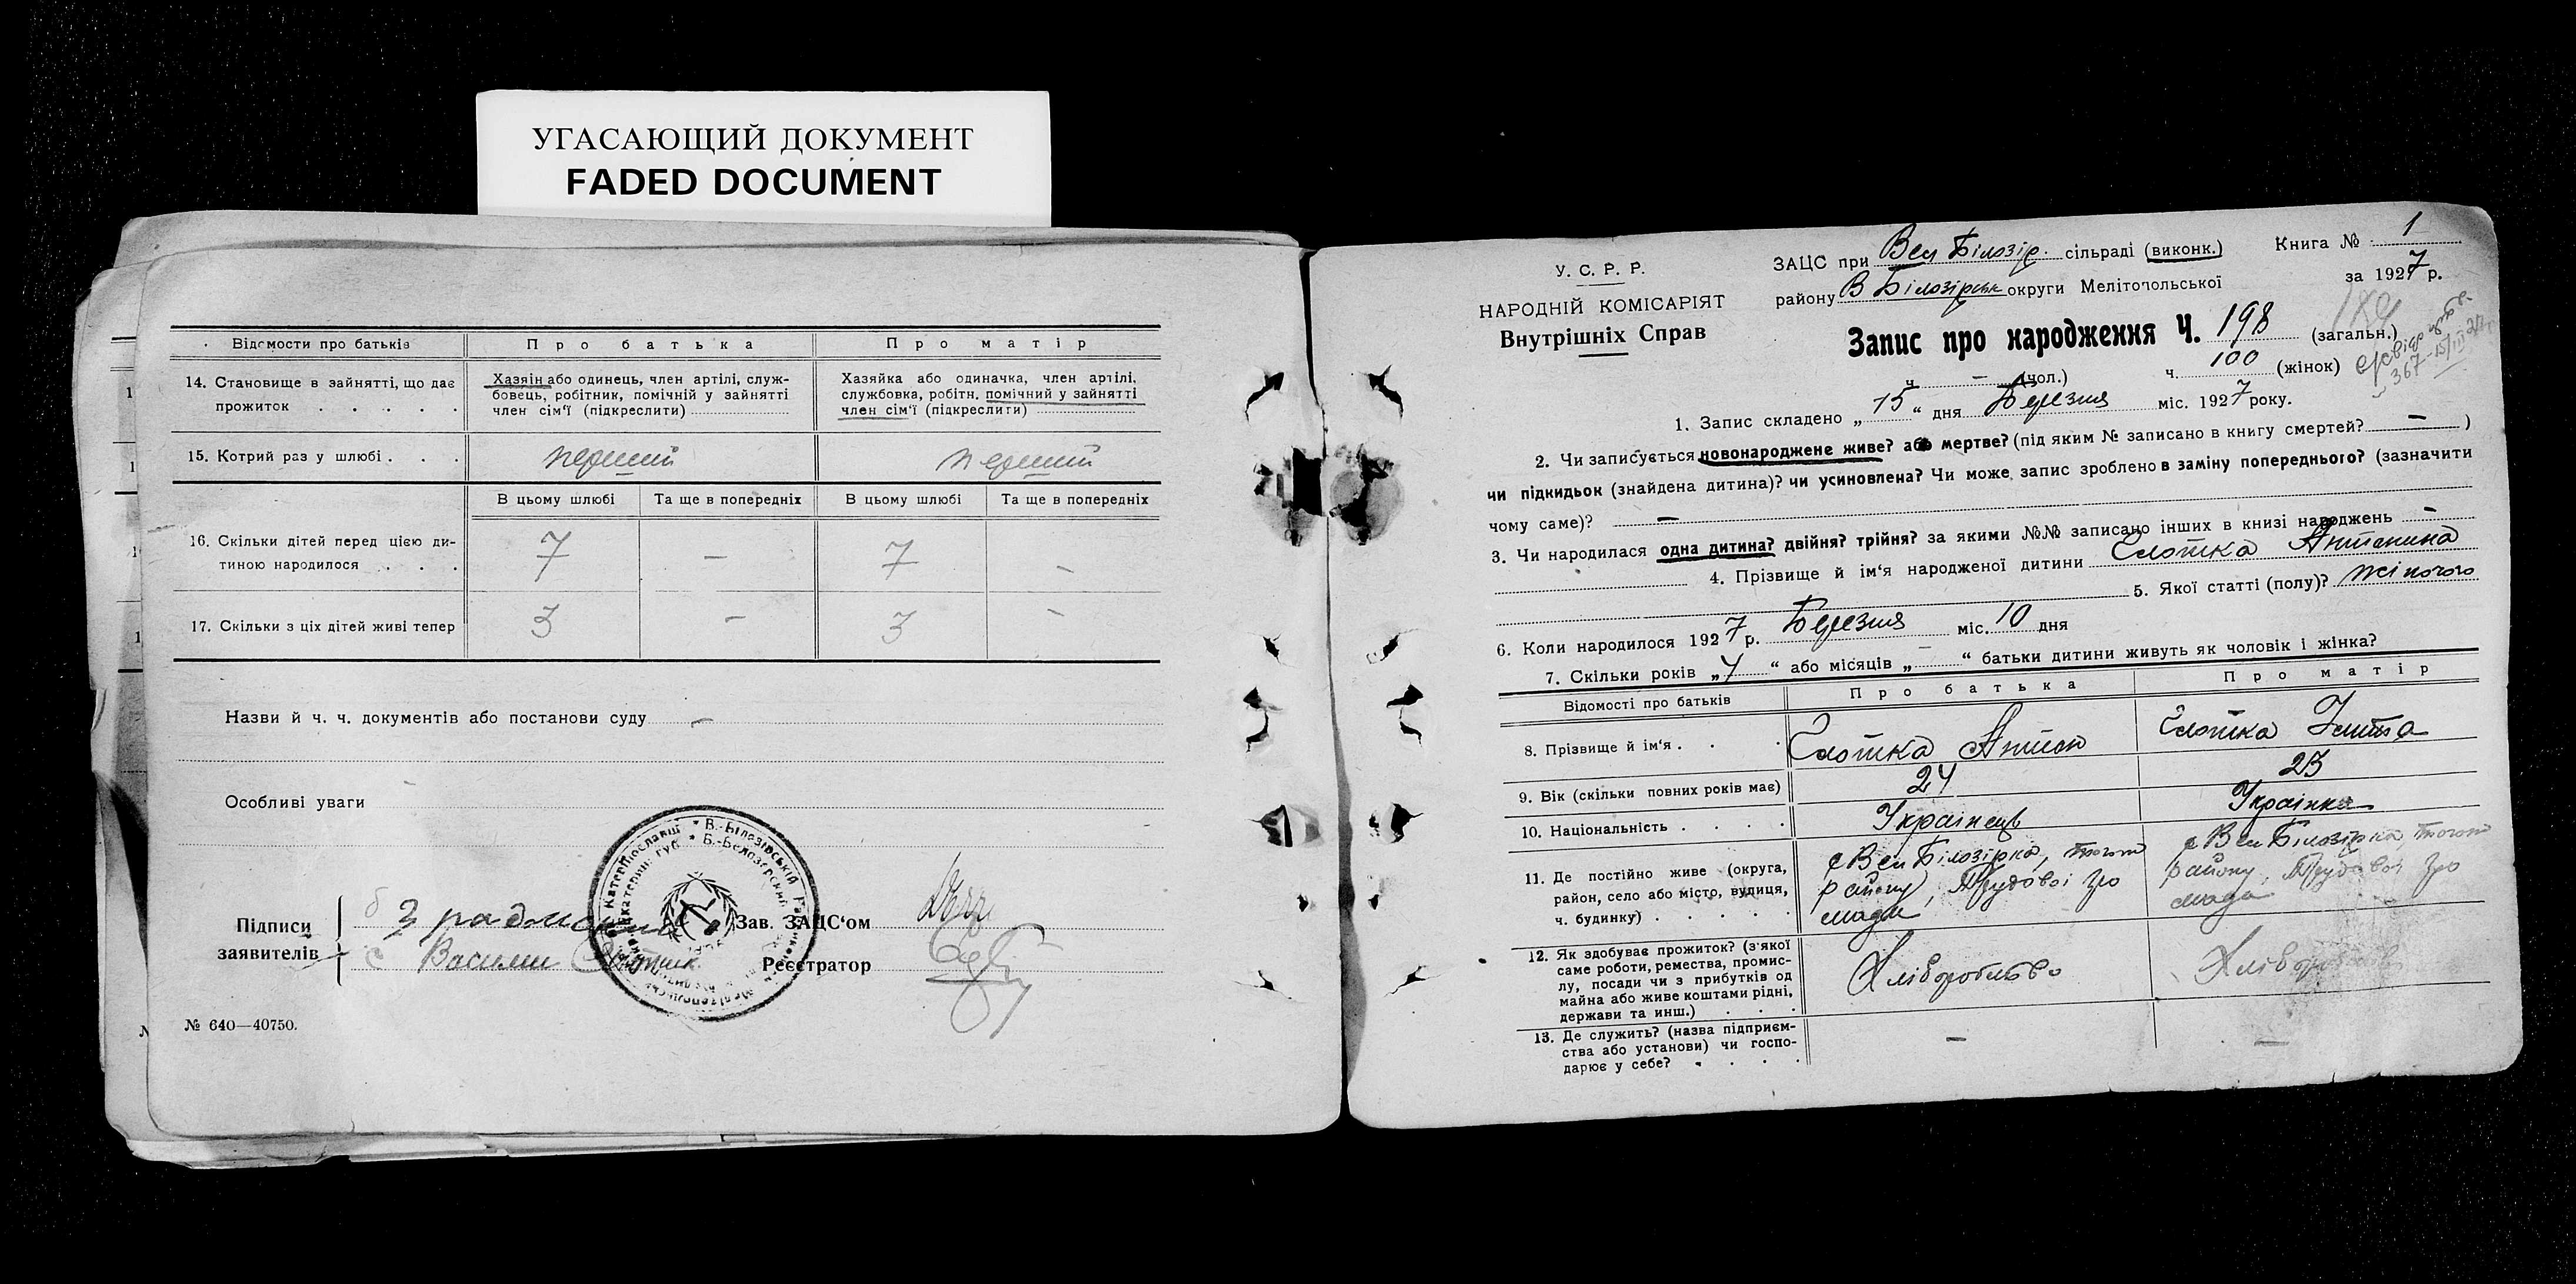 УГАСАЮЩИЙ ДОКУМЕНТ
FADED DOCUMENT
Відомости про батьків
Про батька
Про матір
14. Становище в зайнятті, що дає прожиток . . . . .
Хазяін або одинець, член артілі, служ-
бовець, робітник, помічній у зайнятті
член сім'ї (підкреслити)
Хазяйка або одиначка, член артілі,
службовка, робітн. помічний у зайнятті
член сім'ї (підкреслити)
15. Котрий раз у шлюбі . . .
перший
перший
В цьому шлюбі
Та ще в попередніх
В цьому шлюбі
Та ще в попередніх
16. Скільки дітей перед цією ди-
тиною народилося . . .
7 — 7 -
17. Скільки з ціх дітей живі тепер
3 - 3 -
Назви й ч. ч. документів або постанови суду —
Особливі уваги
Підписи
заявителів
Васили
Зав. ЗАЦС'ом
Реєстратор
№ 640—40750.
У. С. Р. Р.
НАРОДНІЙ КОМІСАРІЯТ
Внутрішніх Справ
ЗАЦС при Вел Білозір. сільраді (виконк.)
Книга № 1
району В Білозірськ округи Мелітопольської
за 1927 р.
Запис про народження Ч. 198 (загальн.)
ч. — (чол.)
ч. 100 (жінок)
1. Запис складено „15“ дня Березня міс. 1927 року.
2. Чи записується новонароджене живе? або мертве? (під яким № записано в книгу смертей? — )
чи підкидьок (знайдена дитина)? чи усиновлена? Чи може запис зроблено в заміну попереднього? (зазначити
чому саме)? —
3. Чи народилася одна дитина? двійня? трійня? за якими №№ записано інших в книзі народжень —
4. Прізвище й ім'я народженої дитини Слотка Антонина
5. Якої статті (полу)? жіночого
6. Коли народилося 1927 р. Березня міс. 10 дня
7. Скільки років „7“ або місяців „—“ батьки дитини живуть як чоловік і жінка?
Відомості про батьків
Про батька
Про матір
8. Прізвище й ім'я . . .
Слотка Антон
Слотка
9. Вік (скільки повних років має)
24
23
10. Національність . . . .
Українець
Українка
11. Де постійно живе (округа,
район, село або місто, вулиця,
ч. будинку) . . . . .
с Вел Білозірка, того ж
району, Трудовоі гро
мади
с Вел Білозірка, того ж
району, Трудовоі гро
мада
12. Як здобуває прожиток? (з'якої
саме роботи, ремества, промис-
лу, посади чи з прибутків од
майна або живе коштами рідні,
держави та инш.) . . .
Хліборобство
Хліборобство
13. Де служить? (назва підприєм-
ства або установи) чи госпо-
дарює у себе? . . . .
—
—